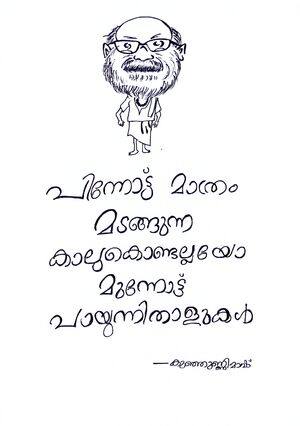 പിന്നോട്ട് മാത്രം
മടങ്ങുന്ന
കാലുകൊണ്ടല്ലയോ
മുന്നോട്ട്
പായുന്നിതാളുകൾ
— കുഞ്ഞുണ്ണിമാഷ്